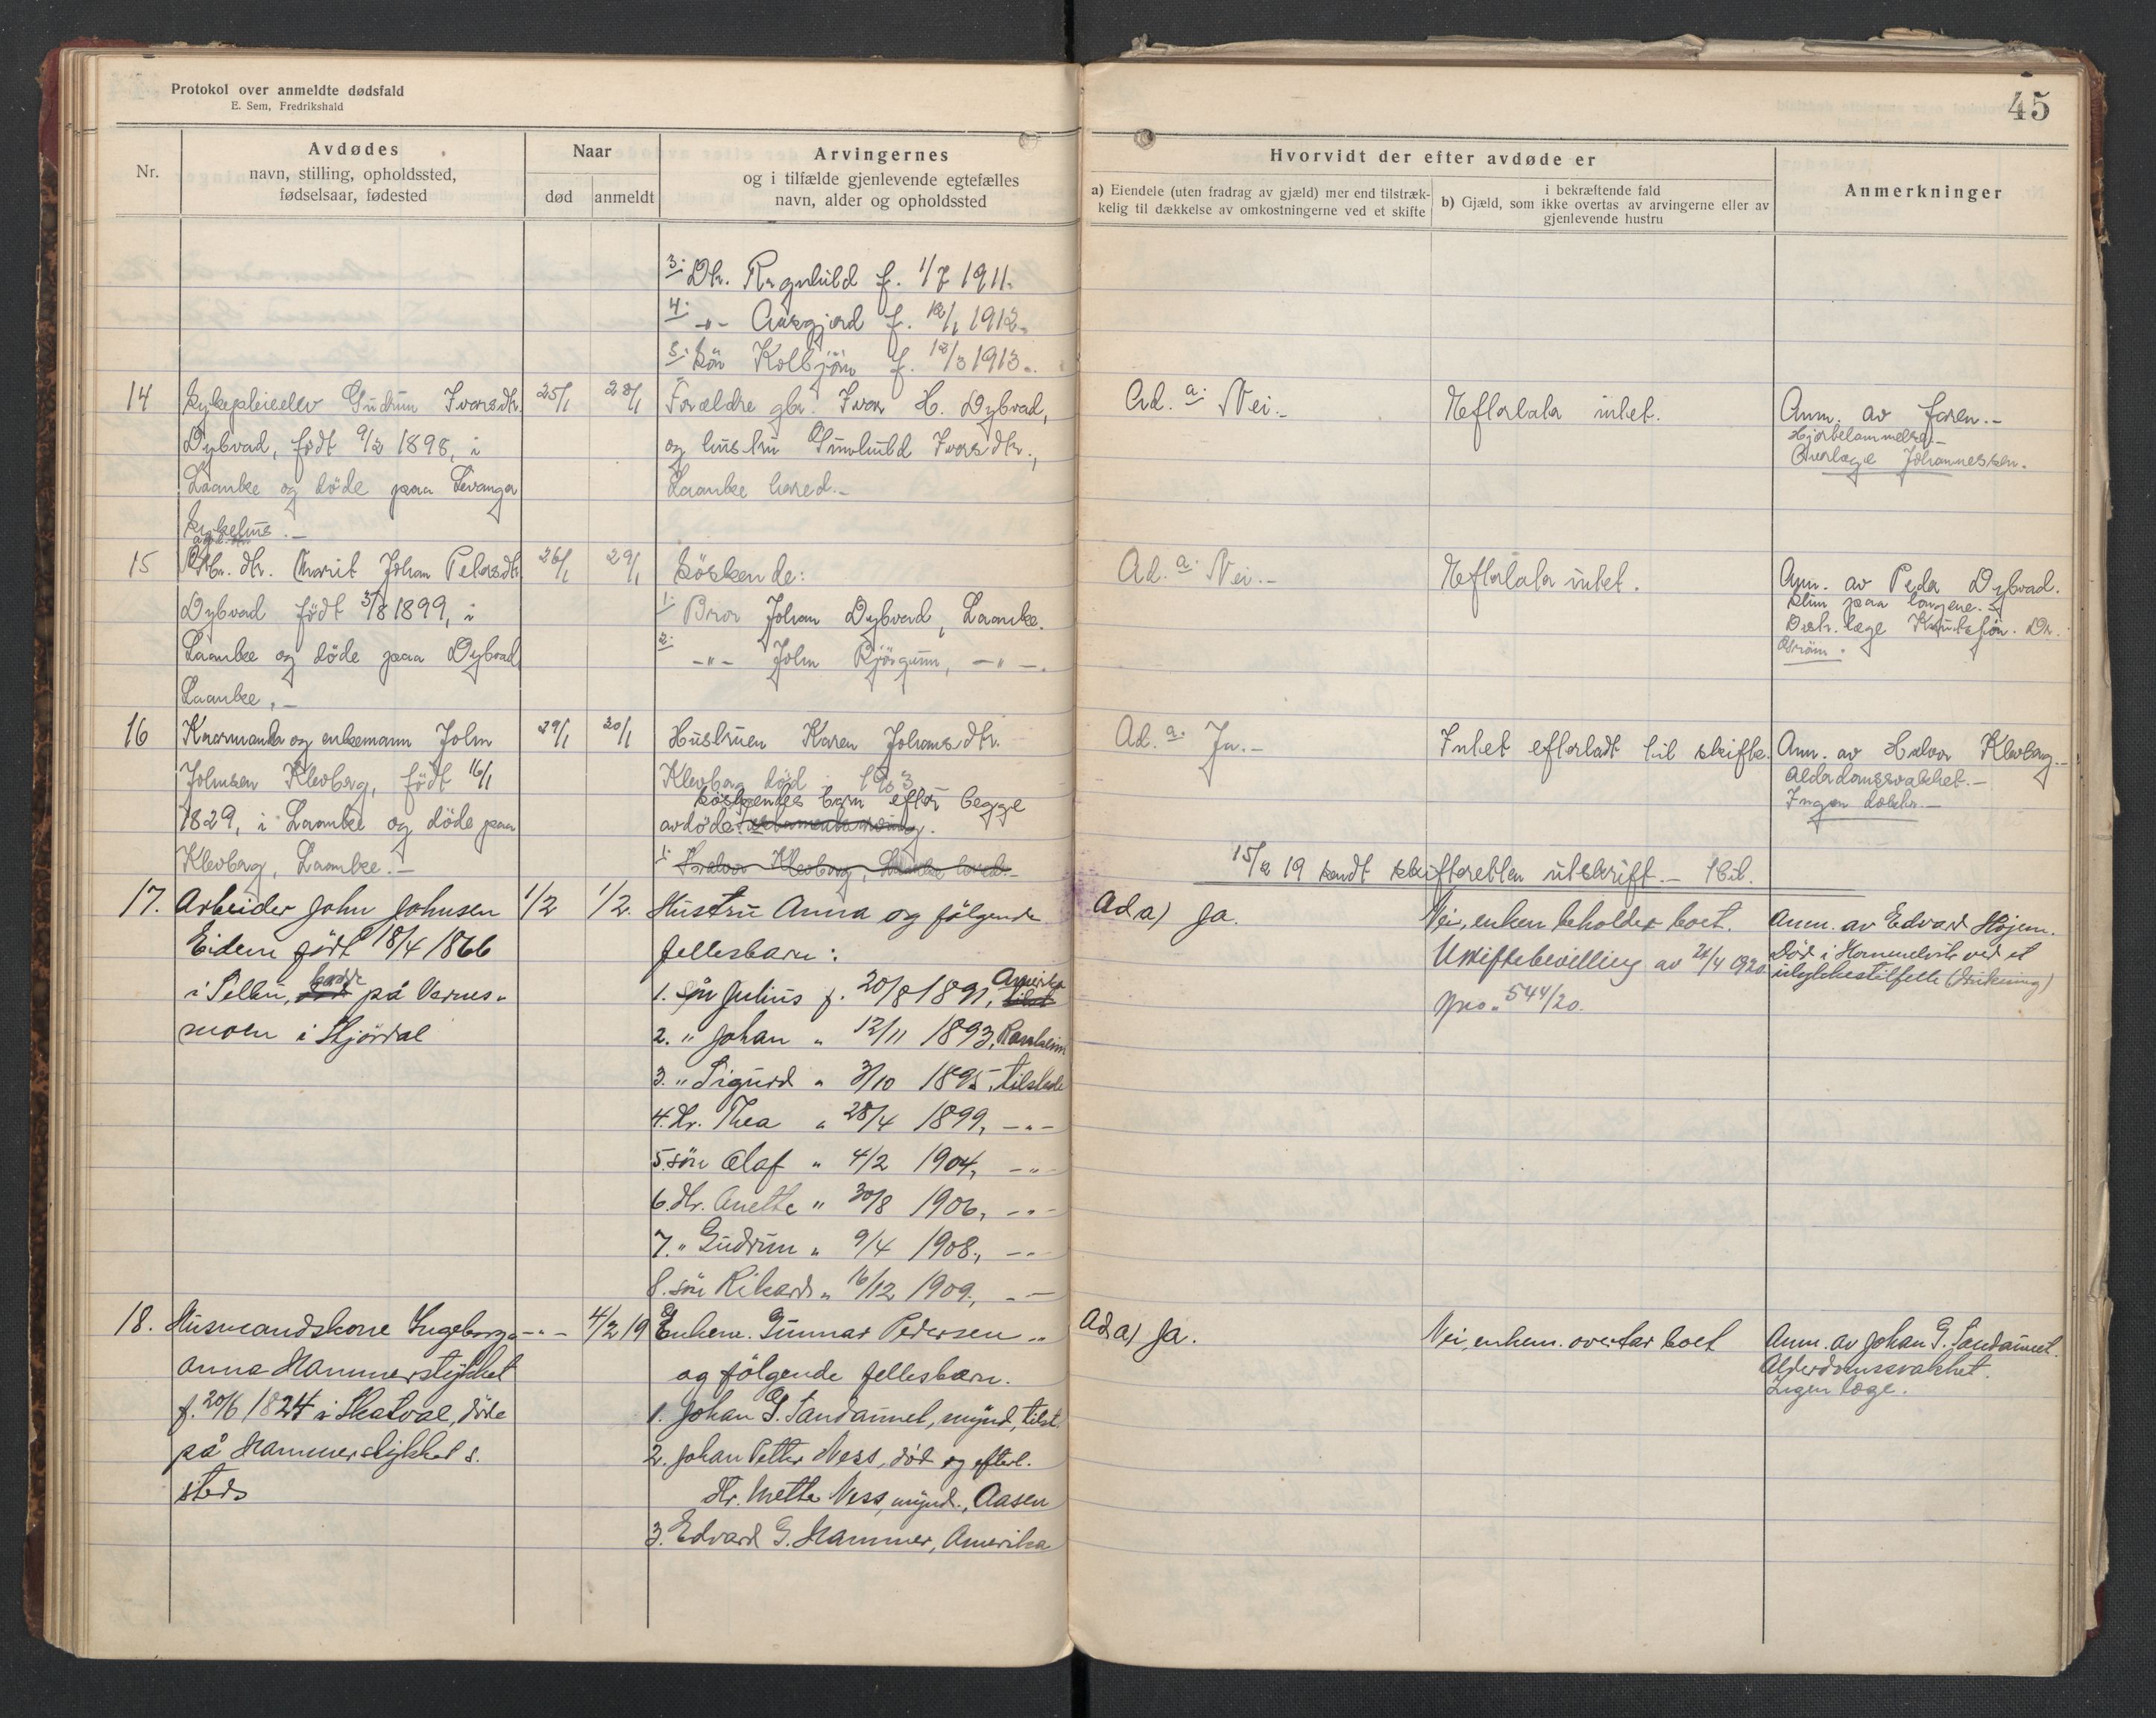 Protokol over anmeldte dødsfald
E. Sem, Fredrikshald
45
Nr.
Avdødes
navn, stilling, opholdssted,
fødselsaar, fødested
Naar
død
anmeldt
Arvingernes
og i tilfælde gjenlevende egtefælles
navn, alder og opholdssted
Hvorvidt der efter avdøde er
a) Eiendele (uten fradrag av gjæld) mer end tilstræk-
kelig til dækkelse av omkostningerne ved et skifte
i bekræftende fald
b) Gjæld, som ikke overtas av arvingerne eller av
gjenlevende hustru
Anmerkninger
3: Dtr. Ragnhild f. 1/7 1911.
4: -"- Aasgjerd f. 12/1 1912.
5: Søn Kolbjørn f. 12/3 1913.
14
Sykepleieelev Gudrun Ivarsdtr.
Dybvad, født 9/2 1898, i
Laanke og døde paa Levanger
Sykehus.-
25/1
28/1
Forældre gbr. Ivar H. Dybvad,
og hustru Gunhild Ivarsdtr.,
Laanke hered.-
Ad. a: Nei.-
Efterlater intet.
Anm. av faren.-
Hjertelammelse.-
Overlæge Johannessen.
15
Gbr. dtr. Marit Johan Petersdtr.
Dybvad født 3/8 1899, i
Laanke og døde paa Dybvad
Laanke,-
26/1
29/1
Søskende:
1: Bror Johan Dybvad, Laanke.
2: -"- John Bjørgum, -"-.
Ad. a: Nei.-
Efterlater intet.
Anm. av Peder Dybvad.
Slim paa lungene.-
Distr. læge Knutsøn. Dr.
Strøm.
16
Kaarmand og enkemann John
Johnsen Klevberg, født 16/1
1829, i Laanke og døde paa
Klevberg, Laanke.-
29/1
30/1
Hustruen Karen Johansdtr.
Klevberg død i 1903
Søskendes barn efter begge
avdøde.
1: Halvor Klevberg, Laanke hered.-
Ad. a: Ja.-
Intet efterladt til skifte.
Anm. av Halvor Klevberg.-
Alderdomssvakhet.-
Ingen doktor.-
15/2 19 sendt skifteretten utskrift.- 1 bil.
17.
Arbeider John Johnsen
Eidem født 18/4 1866
i Selbu, bodde på Vernes-
moen i Stjørdal
1/2
1/2.
Hustru Anna og følgende
fellesbarn:
1. søn Julius f. 20/8 1891, Amerika
2. " Johan " 12/11 1893, Ranheim
3. " Sigurd " 3/10 1895, tilstede
4. dtr. Thea " 28/4 1899, -"-
5. søn Olaf " 4/2 1904, -"-
6. dtr. Anette " 30/8 1906, -"-
7. " Gudrun " 9/4 1908, -"-
8. søn Rikard " 16/12 1909, -"-
Ad a) Ja.
Nei, enken beholder boet.
Uskiftebevilling av 26/4 1920.
Jno. 544/20.
Anm. av Edvard Højem.
Død i Hommelvik ved et
ulykkestilfelle (drukning)
18.
Husmandskone Ingeborg
Anna Hammerstykket
f. 20/6 1824 i Skatval, døde
på Hammerstykket s.
sted
-"-
4/2 19
Enkem. Gunnar Pedersen
og følgende fellesbarn.
1. Johan G. Sandaunet, mynd, tilst.
2. Johan Petter Ness, død og efterl.
dtr. Mette Ness, mynd., Aasen
3. Edvard G. Hammer, Amerika
Ad a) Ja.
Nei, enkem. overtar boet
Anm. av Johan G. Sandaunet.
Alderdomssvakhet.
Ingen læge.